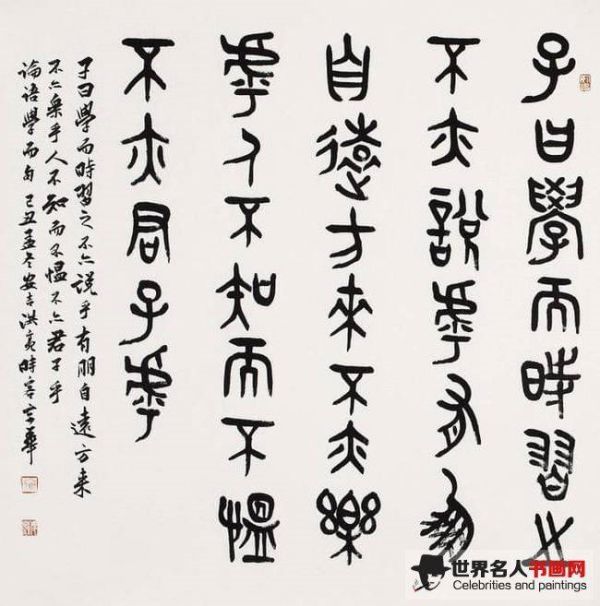 子曰學而時習之
不亦說虖有朋
自遠方來不亦樂
虖人不知而不慍
不亦君子虖
子曰學而時習之不亦說乎有朋自遠方来
不亦樂乎人不知而不愠不亦君子乎
論語學而句己丑孟冬安吉洪亮時客京華
世界名人书画网
Celebrities and paintings